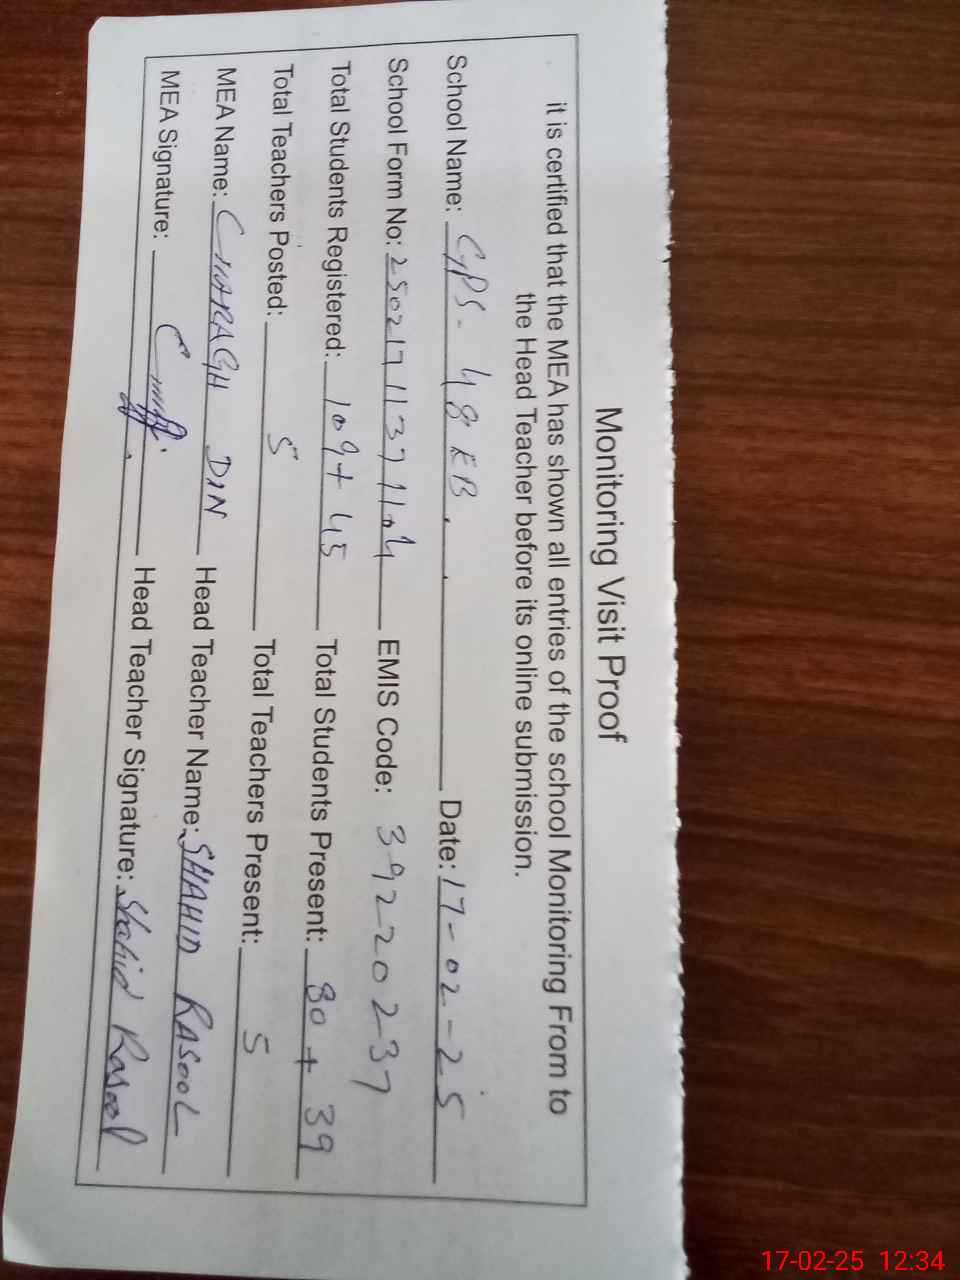 Monitoring Visit Proof
it is certified that the MEA has shown all entries of the school Monitoring From to
the Head Teacher before its online submission.
School Name: GPS. 48 KB. Date: 17-02-25
School Form No: EMIS Code: 39220237
Total Students Registered: 109+45 Total Students Present: 80 + 39
Total Teachers Posted: 5 Total Teachers Present: 5
MEA Name: CHARAGH DIN Head Teacher Name: SHAHID RASOOL
MEA Signature: Head Teacher Signature: Shahid Rasool
17-02-25 12:34